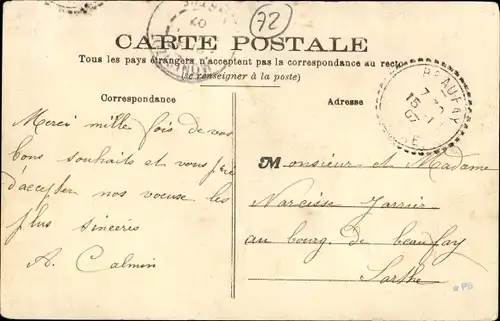 72
CARTE POSTALE
Tous les pays étrangers n'acceptent pas la correspondance au recto
(se renseigner à la poste)
Correspondance
Merci mille fois de vos
bons souhaits et vous prie
d'accepter nos voeux les
plus sincères
A. Calmin
Adresse
BEAUFAY
7
15
07
Monsieur et Madame
Narcisse
au bourg de beaufay
Sarthe
*PB